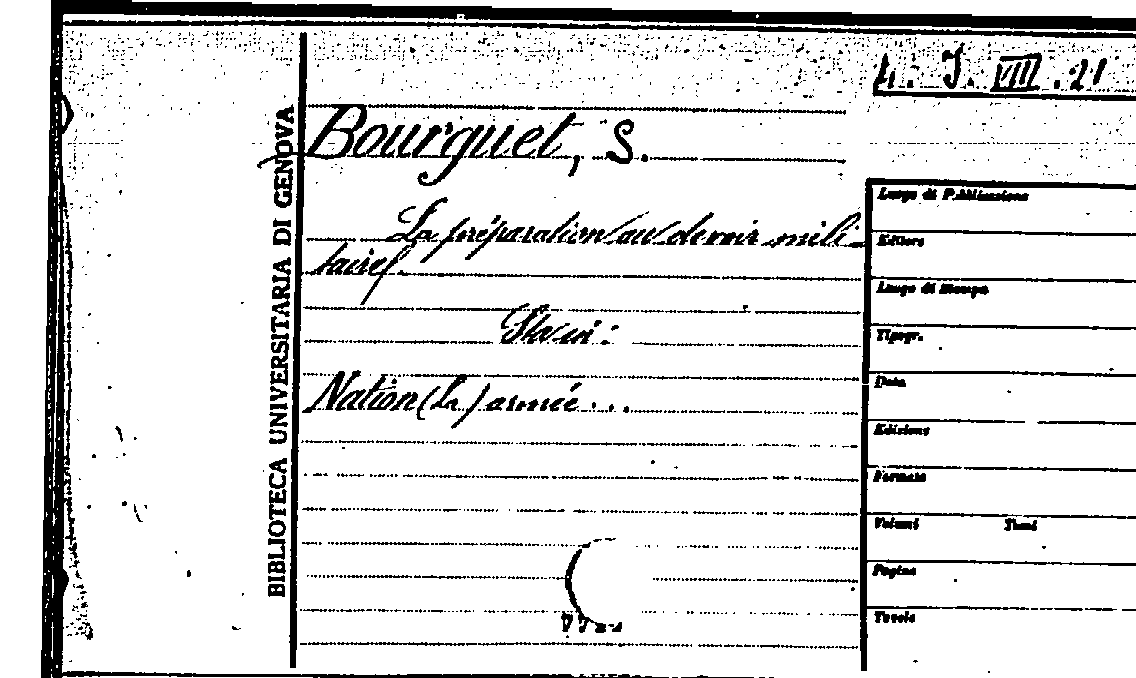 4. J. VIII. 21
BIBLIOTECA UNIVERSITARIA DI GENOVA
Bourguet, S.
La préparation au devoir mili-
taire.
Nation (La) armée...
Luogo di Pubblicazione
Editore
Luogo di Stampa
Tipogr.
Data
Edizione
Formato
Volumi Tomi
Pagine
Tavole